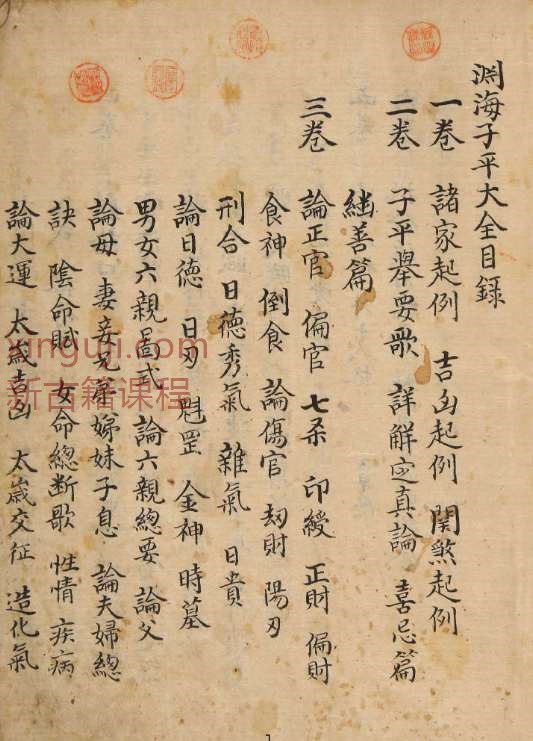 渊海子平大全目録
一卷 諸家起例 吉凶起例 関煞起例
二卷 子平舉要歌 詳解定真論 喜忌篇
継善篇
三卷 論正官 偏官 七杀 印綬 正財 偏財
食神 倒食 論傷官 刼財 陽刃
刑合 日徳秀氣 雜氣 日貴
論日徳 日刃 魁罡 金神 時墓
男女六親啚式 論六親總要 論父
論母 妻妾兄弟娣妹子息 論夫婦總
訣 陰命賦 女命總断歌 性情 疾病
論大運 太歲吉凶 太歲交征 造化氣
xinguji.com
新古籍课程